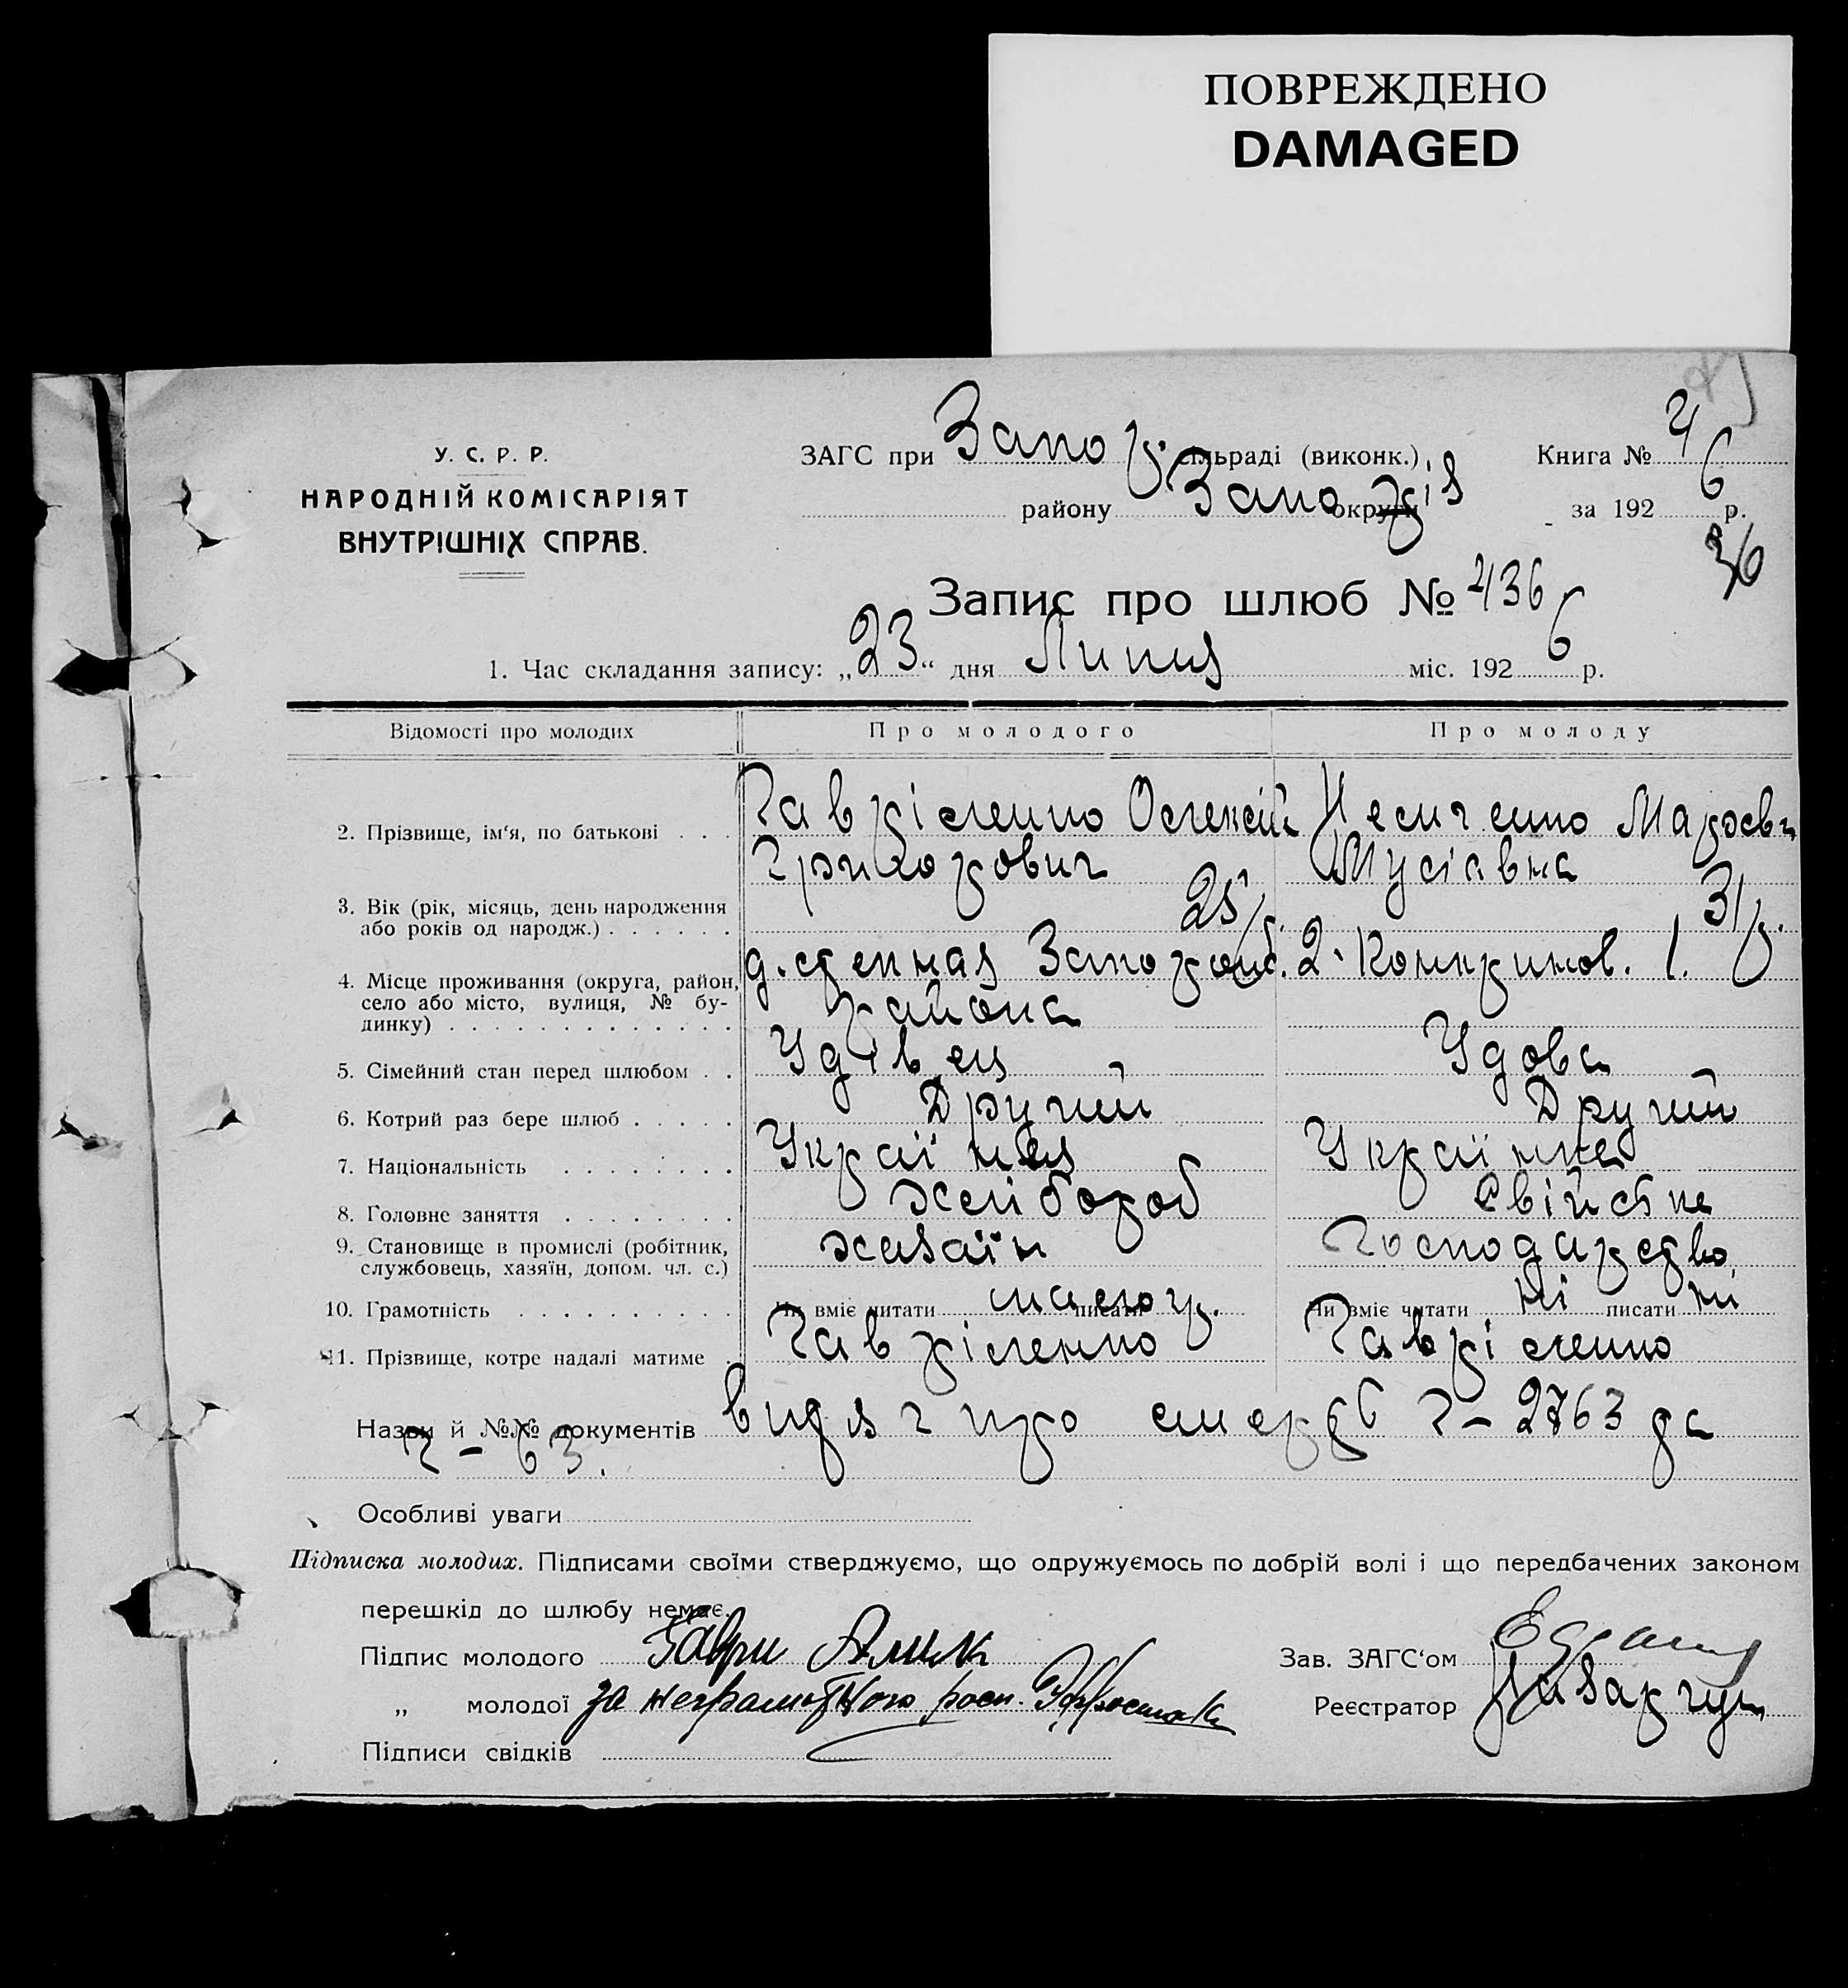 ПОВРЕЖДЕНО
DAMAGED
У. С. Р. Р.
НАРОДНІЙ КОМІСАРІЯТ
ВНУТРІШНІХ СПРАВ.
ЗАГС при Запор. сільраді (виконк.) Книга № 4
району округи за 1926 р.
36
Запис про шлюб № 436
1. Час складання запису: „23“ дня Липця міс. 1926 р.
Відомості про молодих Про молодого Про молоду
2. Прізвище, ім'я, по батькові . . . Гавріленко Олексій
Григорович Мусіівна
3. Вік (рік, місяць, день народження
або років од народж.) . . . . . . 25 р. 31 р.
4. Місце проживання (округа, район,
село або місто, вулиця, № бу-
динку) . . . . . . . . . . . . . д. степная района
5. Сімейний стан перед шлюбом . . Удівец Удова
6. Котрий раз бере шлюб . . . . . Другий Другий
7. Національність . . . . . . . . Українец Українка
8. Головне заняття . . . . . . . . хлібороб
9. Становище в промислі (робітник,
службовець, хазяїн, допом. чл. с.) хазаїн господарство
10. Грамотність . . . . . . . . . . Чи вміє читати писати Чи вміє читати ні писати ни
11. Прізвище, котре надалі матиме . Гавріленко Гавріленко
Назви й №№ документів видяг про смерть Г-2763 да
Г-63.
Особливі уваги
Підписка молодих. Підписами своїми стверджуємо, що одружуємось по добрій волі і що передбачених законом
перешкід до шлюбу немає.
Підпис молодого Гаври Зав. ЗАГС'ом
„ молодої за неграмотного росп. Реєстратор
Підписи свідків